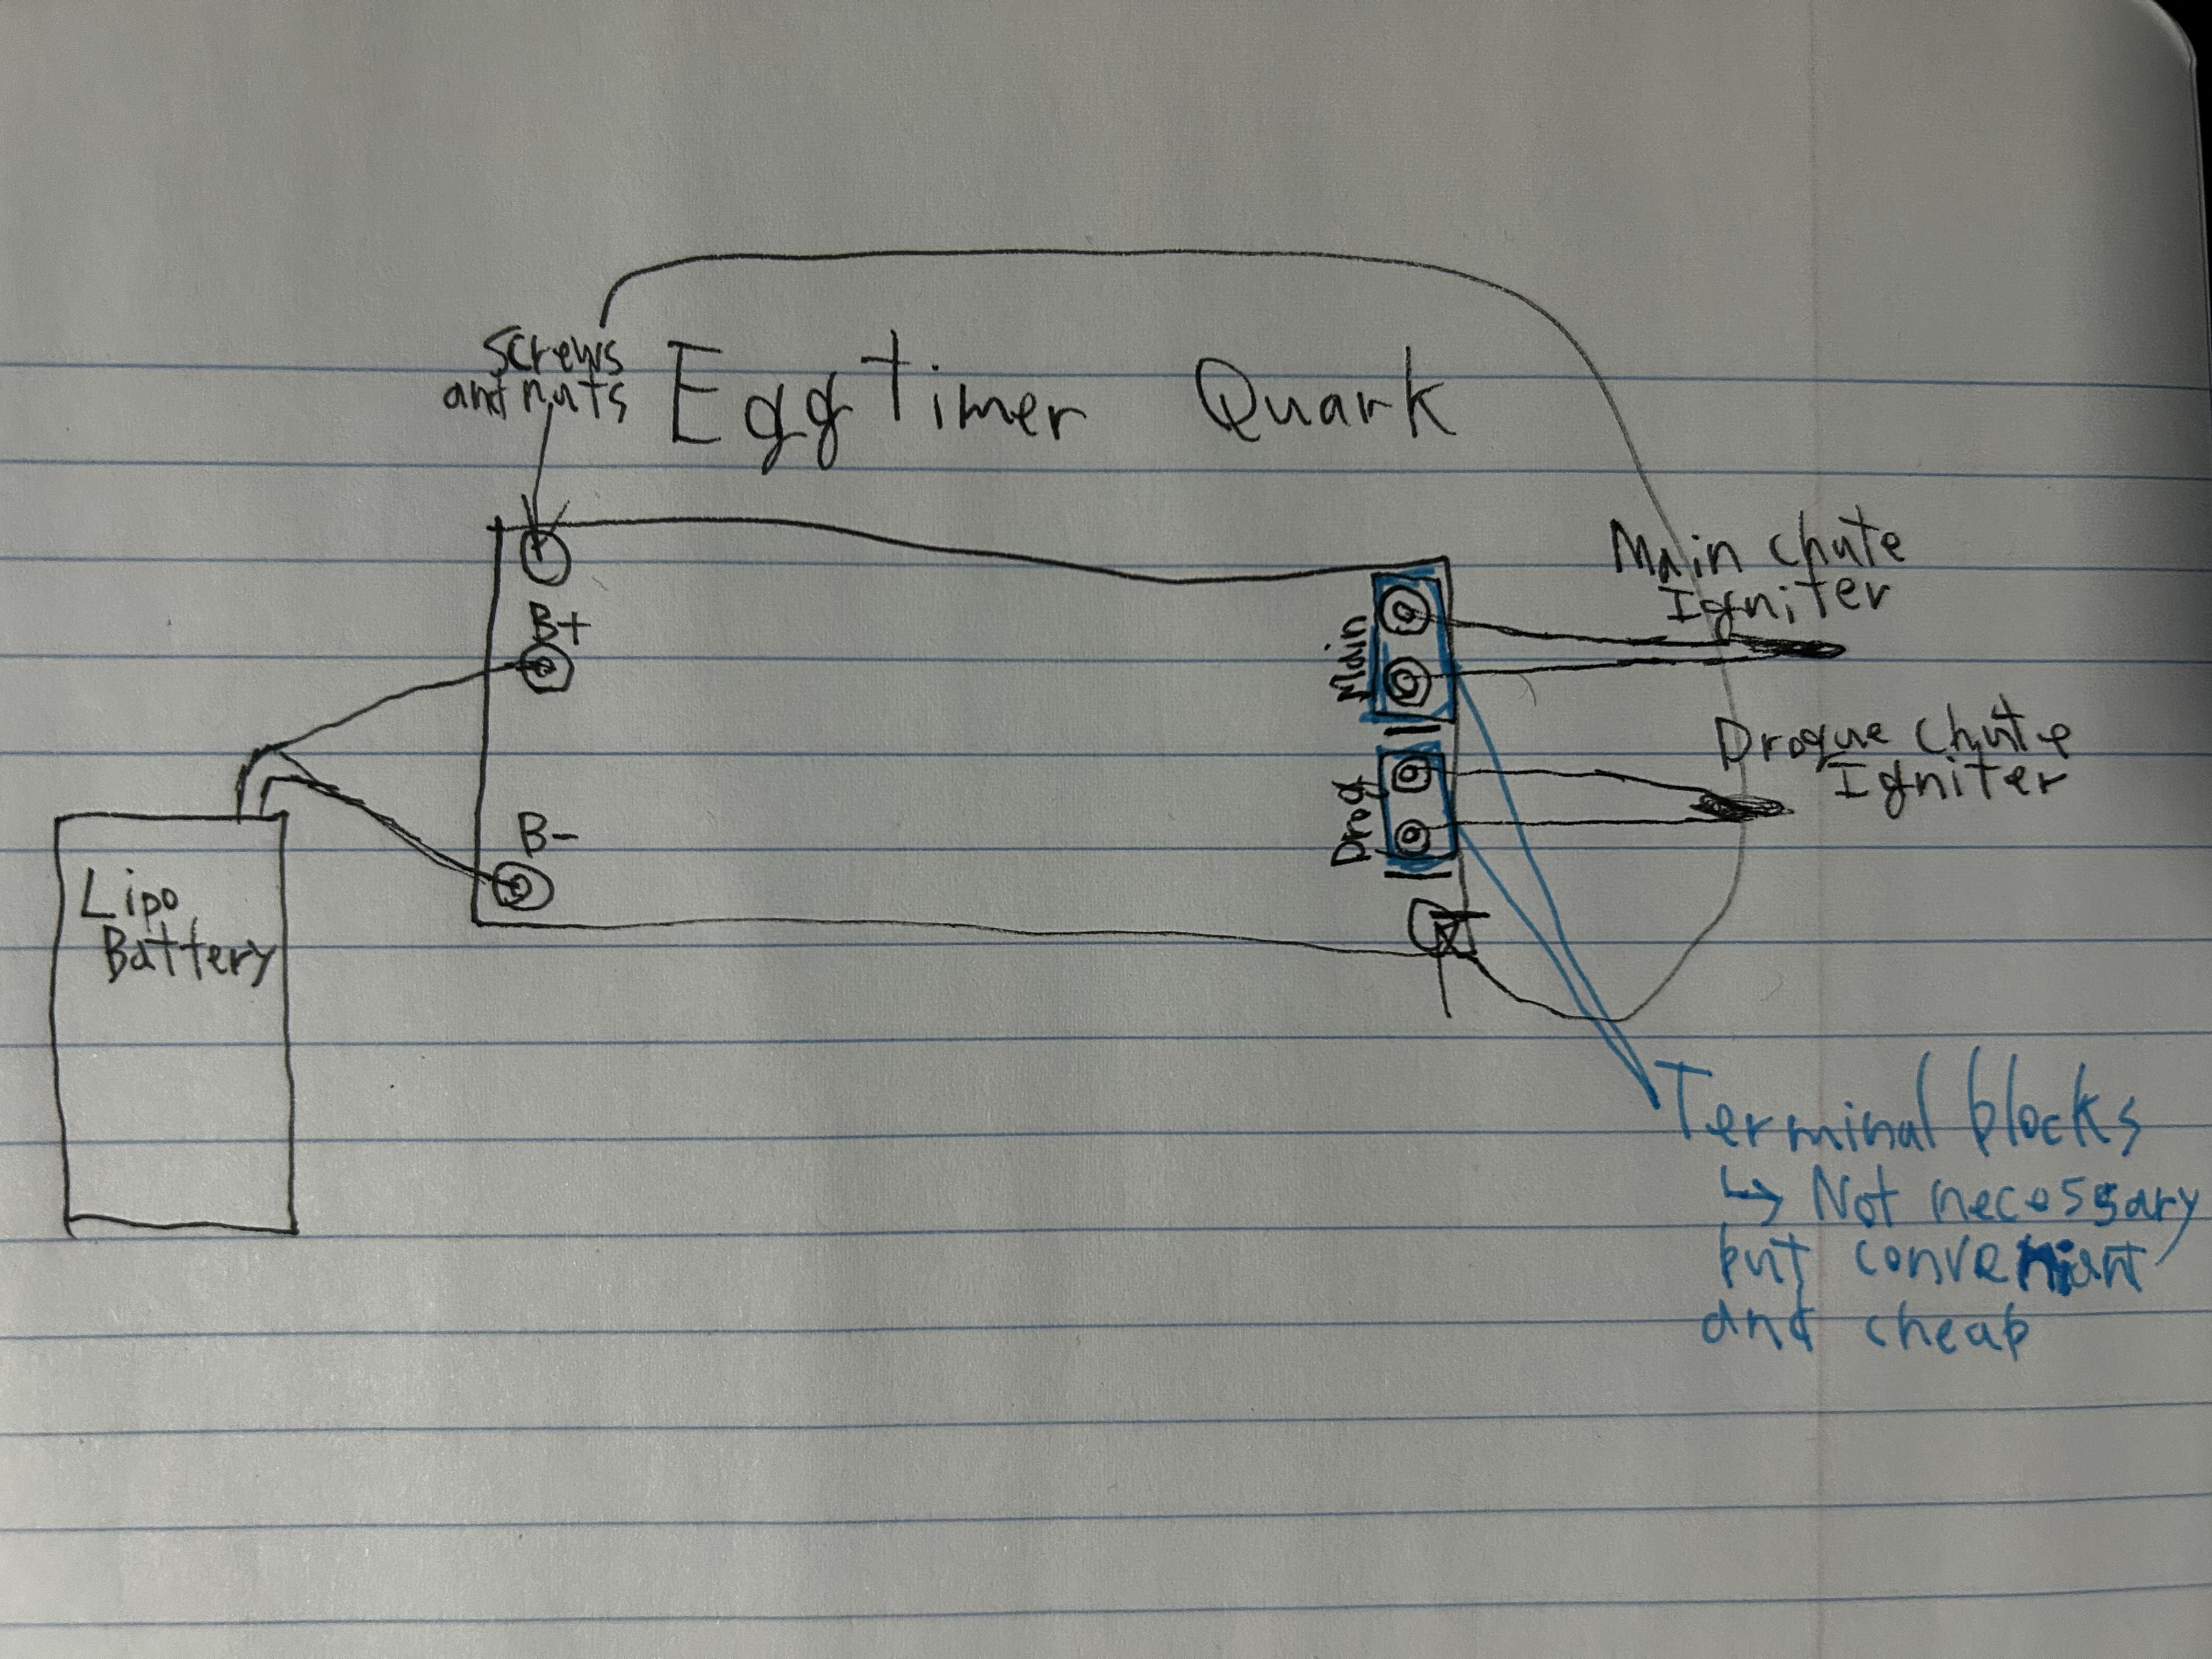 Lipo
Battery
Screws
and nuts
Eggtimer Quark
B+
B-
Main
Drog
Main chute
Igniter
Drogue chute
Igniter
Terminal blocks
↳ Not necossary
but convenient
and cheap